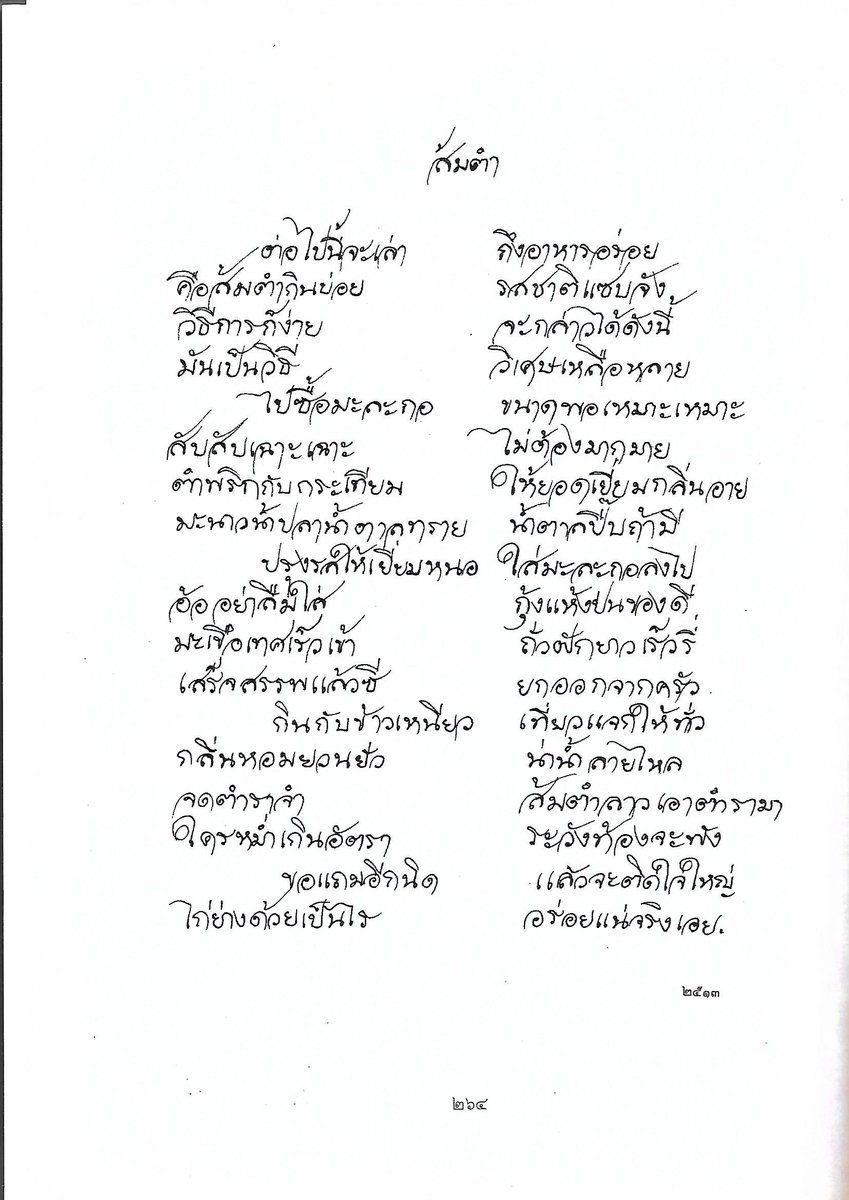 ส้มตำ
ต่อไปนี้จะเล่า ถึงอาหารอร่อย
คือส้มตำกินบ่อย รสชาติแซบจัง
วิธีการก็ง่าย จะกล่าวได้ดังนี้
มันเป็นวิธี วิเศษเหลือหลาย
ไปซื้อมะละกอ ขนาดพอเหมาะเหมาะ
สับสับเฉาะเฉาะ ไม่ต้องมากมาย
ตำพริกกับกระเทียม ให้ยอดเยี่ยมกลิ่นอาย
มะนาวน้ำปลาน้ำตาลทราย น้ำตาลปี๊บถ้ามี
ปรุงรสให้เยี่ยมหนอ ใส่มะละกอลงไป
อ้อ อย่าลืมใส่ กุ้งแห้งป่นของดี
มะเขือเทศเร็วเข้า ถั่วฝักยาวเร็วรี่
เสร็จสรรพแล้วซี ยกออกจากครัว
กินกับข้าวเหนียว เที่ยวแจกให้ทั่ว
กลิ่นหอมยวนยั่ว น่าน้ำลายไหล
จดตำราจำ ส้มตำลาวเอาตำรามา
ใครหม่ำเกินอัตรา ระวังท้องจะพัง
ขอแถมอีกนิด แล้วจะติดใจใหญ่
ไก่ย่างด้วยเป็นไร อร่อยแน่จริงเอย.
๒๕๑๓
๒๖๔